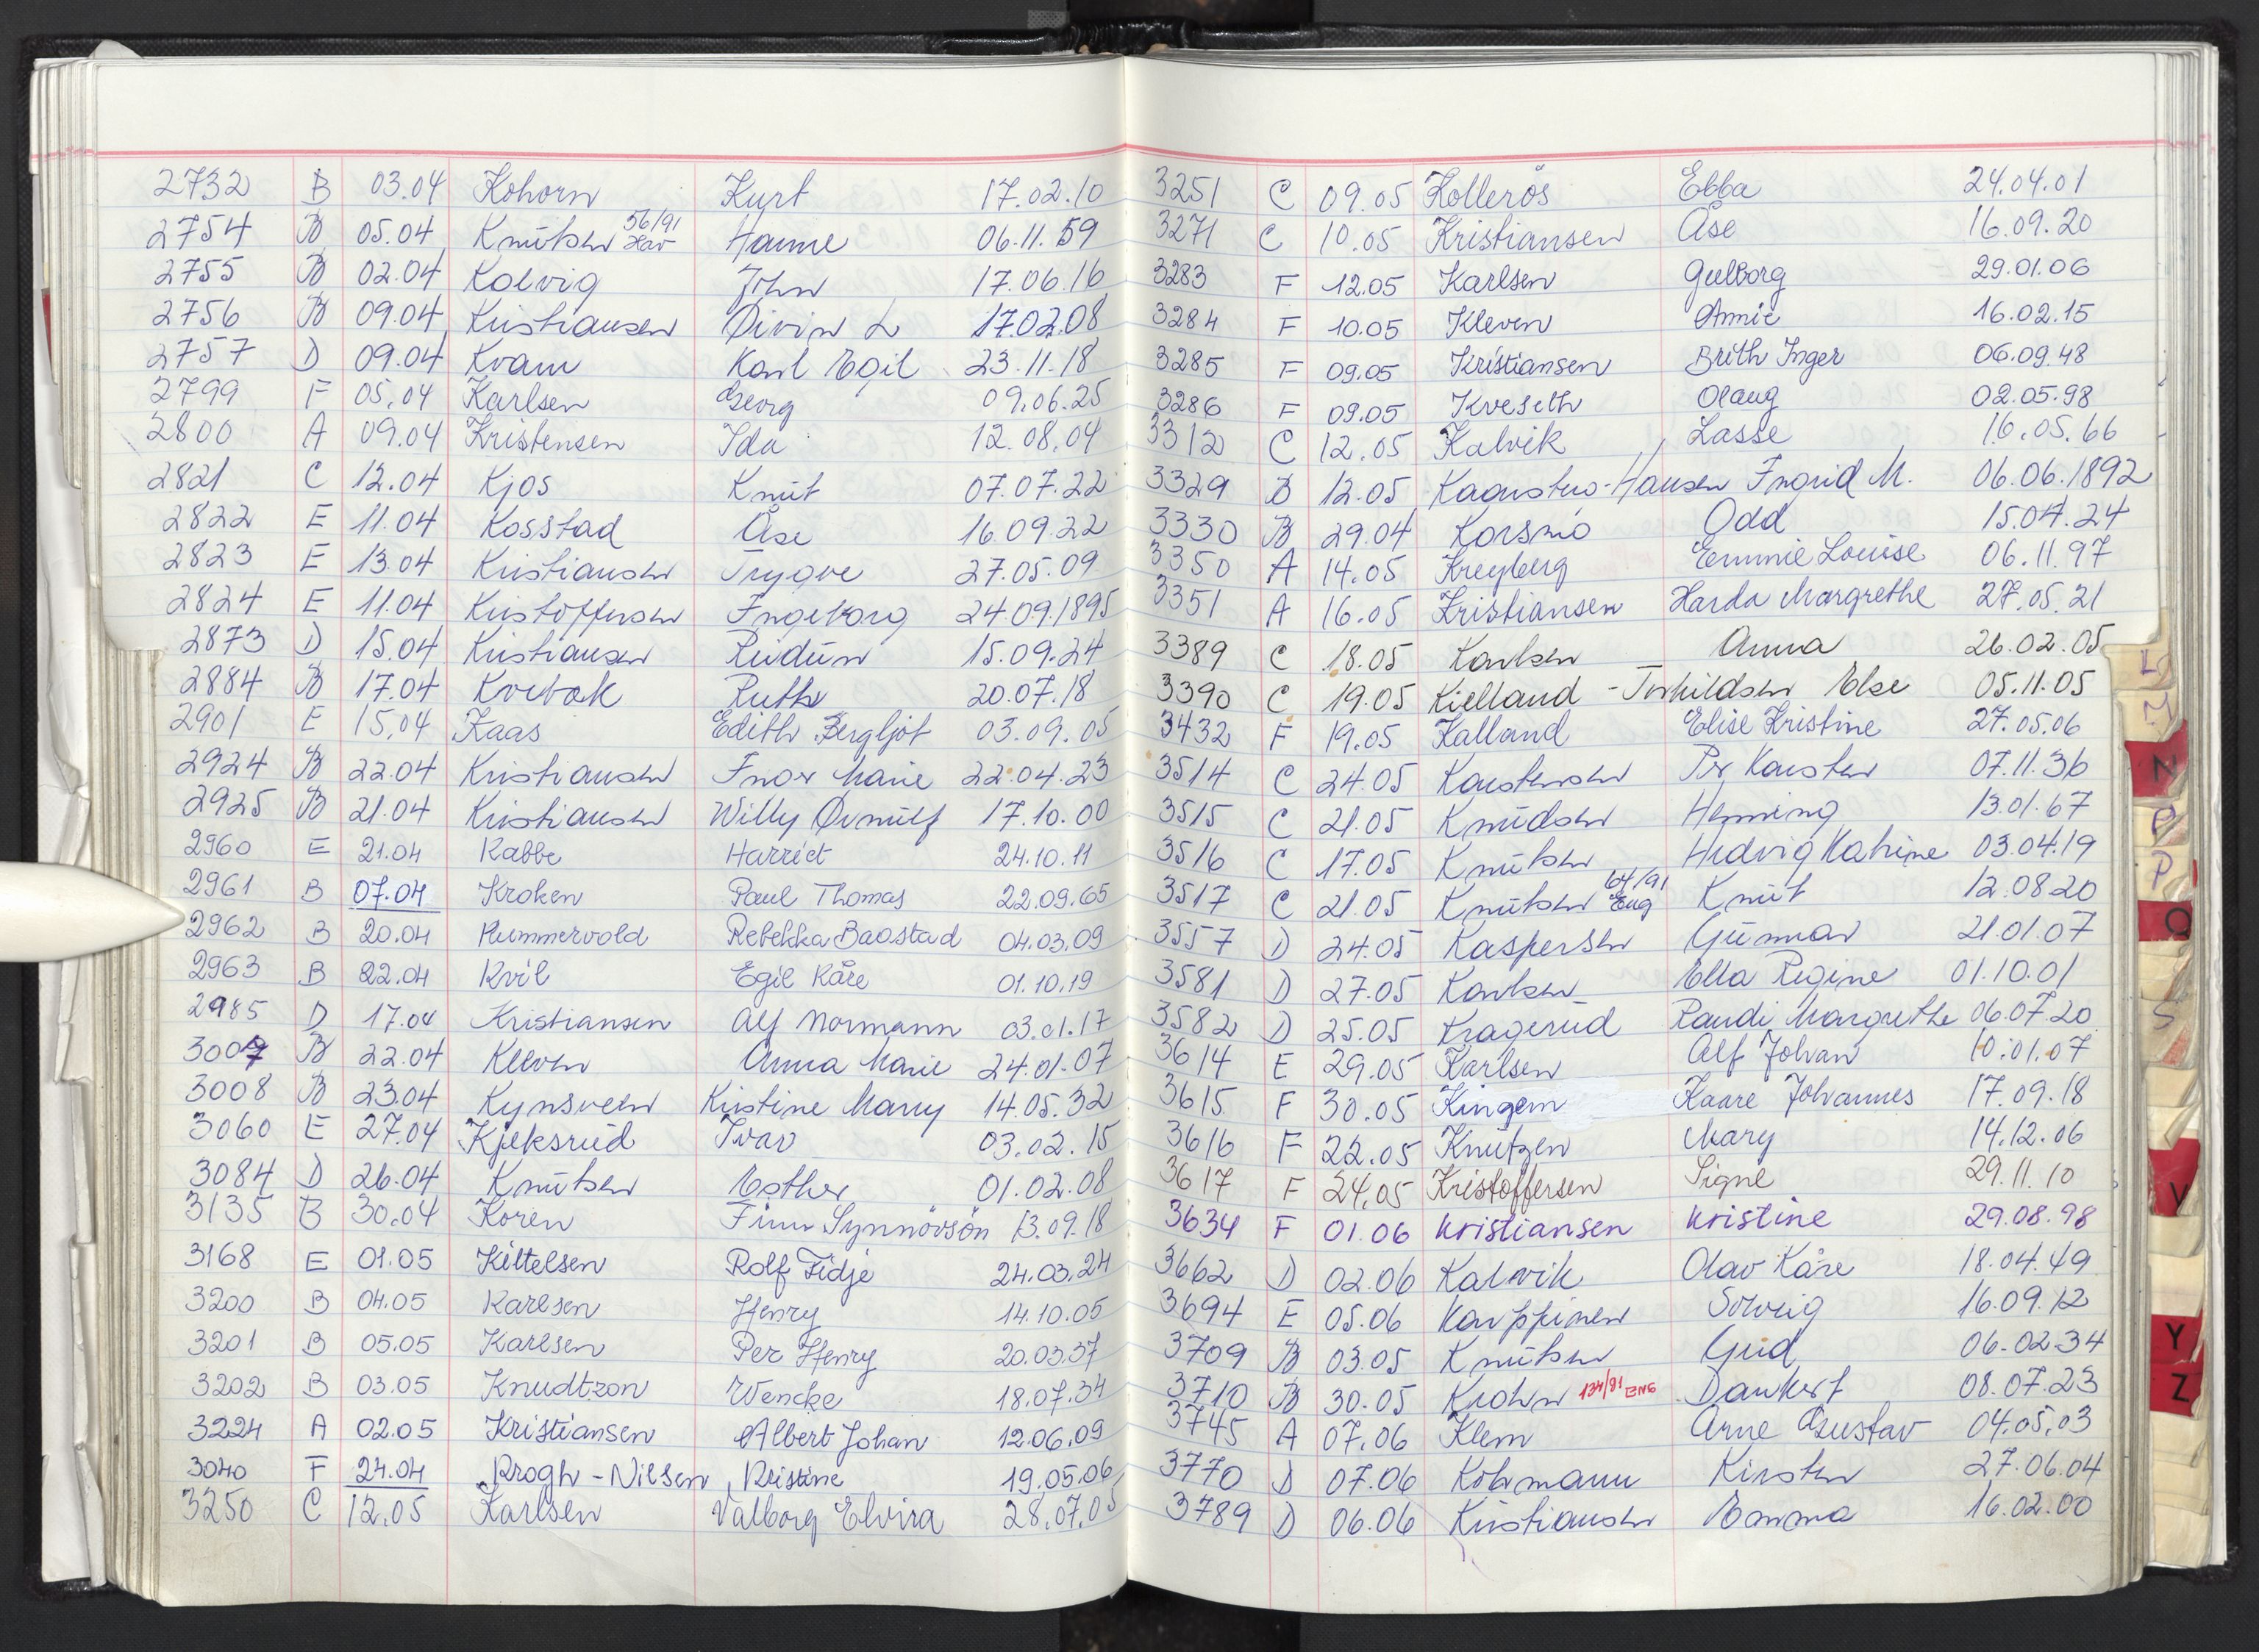 2732 B 03.04 Kohorn Kurt 17.02.10
2754 B 05.04 Knutsen 56/91 Hav Hanne 06.11.59
2755 B 02.04 Kolvig John 17.06.16
2756 B 09.04 Kristiansen Øivin L 17.02.08
2757 D 09.04 Kvam Karl Egil 23.11.18
2799 F 05.04 Karlsen Georg 09.06.25
2800 A 09.04 Kristensen Ida 12.08.04
2821 C 12.04 Kjos Knut 07.07.22
2822 E 11.04 Kosstad Åse 16.09.22
2823 E 13.04 Kristiansen Trygve 27.05.09
2824 E 11.04 Kristoffersen Ingeborg 24.09.1895
2873 D 15.04 Kristiansen Reidun 15.09.24
2884 B 17.04 Kvebæk Ruth 20.07.18
2901 E 15.04 Kaas Edith Bergljot 03.09.05
2924 B 22.04 Kristiansen Inor Marie 22.04.23
2925 B 21.04 Kristiansen Willy Ørnulf 17.10.00
2960 E 21.04 Kabbe Harriet 24.10.11
2961 B 07.04 Kroken Paul Thomas 22.09.65
2962 B 20.04 Kummervold Rebekka Baostad 04.03.09
2963 B 22.04 Kvil Egil Kåre 01.10.19
2985 D 17.04 Kristiansen Alf Normann 03.01.17
3007 B 22.04 Kleven Anna Marie 24.01.07
3008 B 23.04 Kynsveen Kristine Marry 14.05.32
3060 E 27.04 Kjeksrud Ivar 03.02.15
3084 D 26.04 Knutsen Esther 01.02.08
3135 B 30.04 Koren Finn Synnövsön 13.09.18
3168 E 01.05 Kittelsen Rolf Fidje 24.03.24
3200 B 04.05 Karlsen Henry 14.10.05
3201 B 05.05 Karlsen Per Henry 20.03.37
3202 B 03.05 Knudtzon Wencke 18.07.34
3224 A 02.05 Kristiansen Albert Johan 12.06.09
3040 F 24.04 Krogh-Nilsen, Kristine 19.05.06
3250 C 12.05 Karlsen Valborg Elvira 28.07.05
3251 C 09.05 Kollerös Ebba 24.04.01
3271 C 10.05 Kristiansen Åse 16.09.20
3283 F 12.05 Karlsen Gulborg 29.01.06
3284 F 10.05 Kleven Annie 16.02.15
3285 F 09.05 Kristiansen Brith Inger 06.09.48
3286 F 09.05 Kveseth Olaug 02.05.98
3312 C 12.05 Kalvik Lasse 16.05.66
3329 B 12.05 Kaarsten-Hansen Ingrid M. 06.06.1892
3330 B 29.04 Korsmo Odd 15.04.24
3350 A 14.05 Kreyberg Emmie Louise 06.11.97
3351 A 16.05 Kristiansen Harda Margrethe 27.05.21
3389 C 18.05 Karlsen Anna 26.02.05
3390 C 19.05 Kielland-Torkildsen Else 05.11.05
3432 F 19.05 Kalland Elise Kristine 27.05.06
3514 C 24.05 Karstensen Per Karsten 07.11.36
3515 C 21.05 Knudsen Henning 13.01.67
3516 C 17.05 Knutsen Hedvig Katrine 03.04.19
3517 C 21.05 Knutsen 64/91 Eng Knut 12.08.20
3557 D 24.05 Kaspersen Gunnar 21.01.07
3581 D 27.05 Karlsen Ella Regine 01.10.01
3582 D 25.05 Kragerud Randi Margrethe 06.07.20
3614 E 29.05 Karlsen Alf Johan 10.01.07
3615 F 30.05 Kingem Kaare Johannes 17.09.18
3616 F 22.05 Knutzen Mary 14.12.06
3617 F 24.05 Kristoffersen Signe 29.11.10
3634 F 01.06 Kristiansen Kristine 29.08.98
3662 D 02.06 Kalvik Olav Kåre 18.04.49
3694 E 05.06 Karppinen Solveig 16.09.12
3709 B 03.05 Knutsen Grid 06.02.34
3710 B 30.05 Krohn 134/91 ENG Dankert 08.07.23
3745 A 07.06 Klem Arne Gustav 04.05.03
3770 D 07.06 Köhmann Kirsten 27.06.04
3789 D 06.06 Kristiansen Emma 16.02.00
L
N
P
Q
S
V
Y
Z